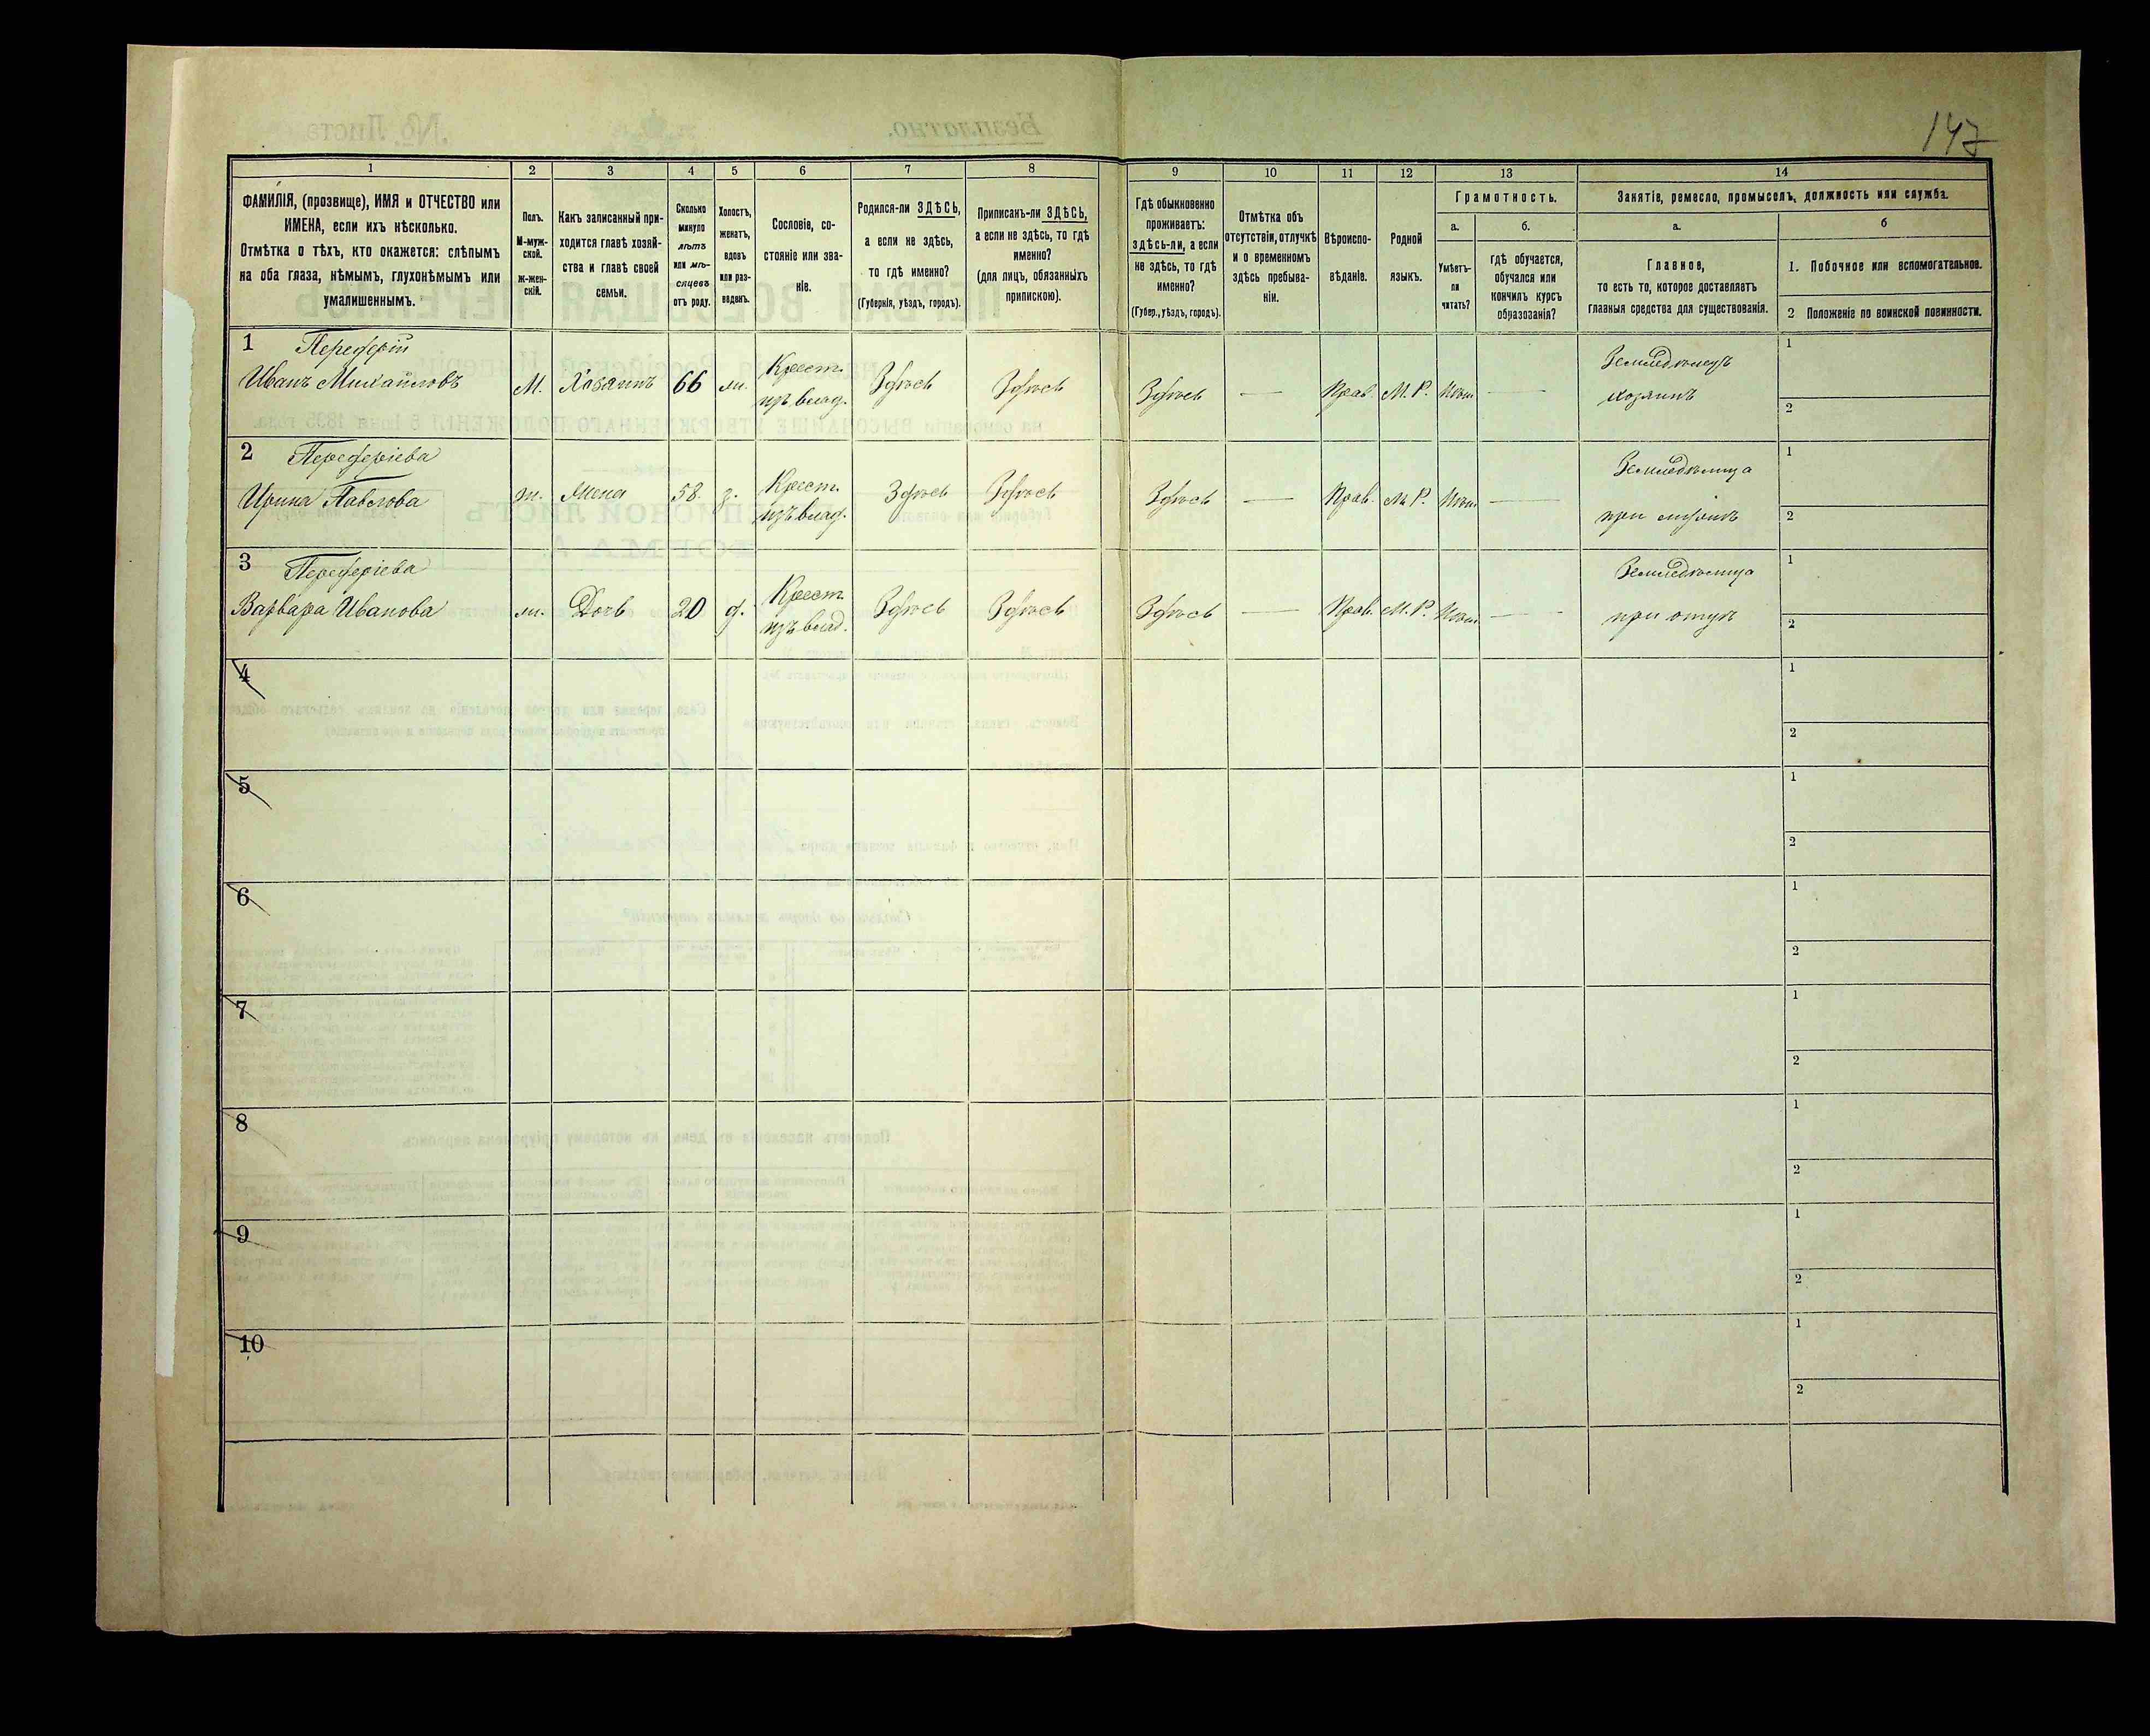 147
1 2 3 4 5 6 7 8 9 10 11 12 13 14
ФАМИЛІЯ, (прозвище), ИМЯ и ОТЧЕСТВО или
ИМЕНА, если ихъ нѣсколько.
Отмѣтка о тѣхъ, кто окажется: слѣпымъ
на оба глаза, нѣмымъ, глухонѣмымъ или
умалишеннымъ.
Полъ.
М-муж-
ской.
Ж-жен-
скій.
Какъ записанный при-
ходится главѣ хозяй-
ства и главѣ своей
семьи.
Сколько
минуло
лѣтъ
или мѣ-
сяцевъ
отъ роду.
Холостъ,
женатъ,
вдовъ
или раз-
веденъ.
Сословіе, со-
стояніе или зва-
ніе.
Родился-ли ЗДѢСЬ,
а если не здѣсь,
то гдѣ именно?
(Губернія, уѣздъ, городъ).
Приписанъ-ли ЗДѢСЬ,
а если не здѣсь, то гдѣ
именно?
(для лицъ, обязанныхъ
припискою).
Гдѣ обыкновенно
проживаетъ:
здѣсь-ли, а если
не здѣсь, то гдѣ
именно?
(Губер., уѣздъ, городъ).
Отмѣтка объ
отсутствіи, отлучкѣ
и о временномъ
здѣсь пребыва-
ніи.
Вѣроиспо-
вѣданіе.
Родной
языкъ.
Грамотность.
а.
Умѣетъ-
ли
читать?
б.
гдѣ обучается,
обучался или
кончилъ курсъ
образованія?
Занятіе, ремесло, промыселъ, должность или служба.
а.
Главное,
то есть то, которое доставляетъ
главныя средства для существованія.
б
1. Побочное или вспомогательное.
2 Положеніе по воинской повинности.
1 Переферій
Иванъ Михайловъ М. Хозяинъ 66 ж. Крест. изъ влад. Здѣсь Здѣсь Здѣсь — Прав. М. Р. Нѣт — Земледѣлецъ хозяинъ
1
2
2 Переферіева
Ирина Павлова ж. Жена 58 з. Крест. изъ влад. Здѣсь Здѣсь Здѣсь — Прав. М. Р. Нѣт — Земледѣлица при мужѣ
1
2
3 Переферіева
Варвара Иванова ж. Дочь 20 д. Крест. изъ влад. Здѣсь Здѣсь Здѣсь — Прав. М. Р. Нѣт — Земледѣлица при отцѣ
1
2
4
1
2
5
1
2
6
1
2
7
1
2
8
1
2
9
1
2
10
1
2